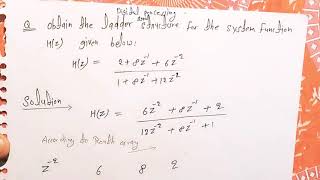 Digital processing
Q obtain the ladder structure for the system function
H(z) given below:
H(z) = 2 + 8z⁻¹ + 6z⁻² / 1 + 8z⁻¹ + 12z⁻²
Solution → H(z) = 6z⁻² + 8z⁻¹ + 2 / 12z⁻² + 8z⁻¹ + 1
According to Routh array
z⁻² 6 8 2